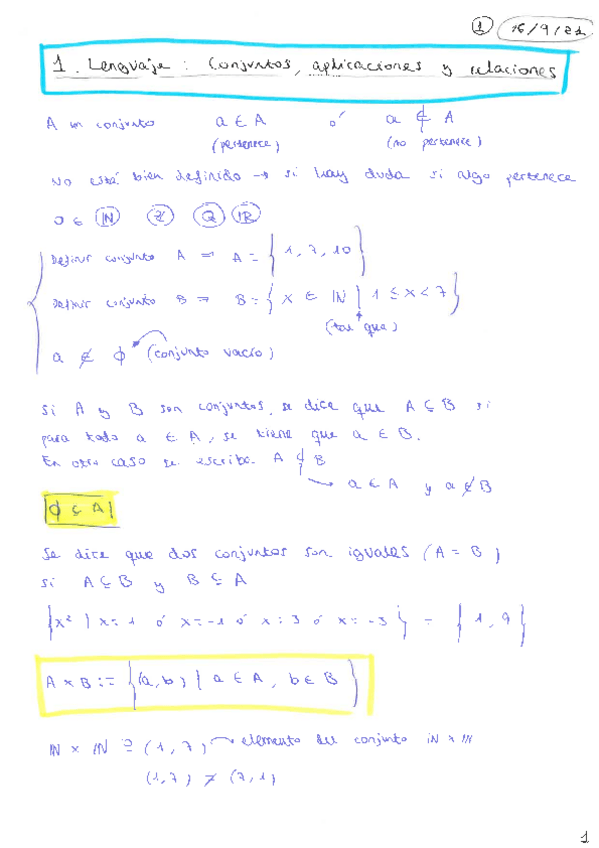 ① 16/9/21
1. Lenguaje: Conjuntos, aplicaciones y relaciones
A un conjunto a ∈ A ó a ∉ A
(pertenece) (no pertenece)
No está bien definido → si hay duda si algo pertenece
0 ∈ ℕ ℤ ℚ ℝ
Definir conjunto A ⇒ A = {1, 7, 10}
Definir conjunto B ⇒ B = {x ∈ ℕ | 1 ≤ x < 7}
(tal que)
a ∉ ∅ (conjunto vacío)
Si A y B son conjuntos, se dice que A ⊆ B si
para todo a ∈ A, se tiene que a ∈ B.
En otro caso se escribe A ⊄ B
→ a ∈ A y a ∉ B
∅ ⊆ A
Se dice que dos conjuntos son iguales (A = B)
si A ⊆ B y B ⊆ A
{x² | x = 1 ó x = -1 ó x = 3 ó x = -3} = {1, 9}
A × B := {(a, b) | a ∈ A, b ∈ B}
ℕ × ℕ ∋ (1, 7) → elemento del conjunto ℕ × ℕ
(1, 7) ≠ (7, 1)
1